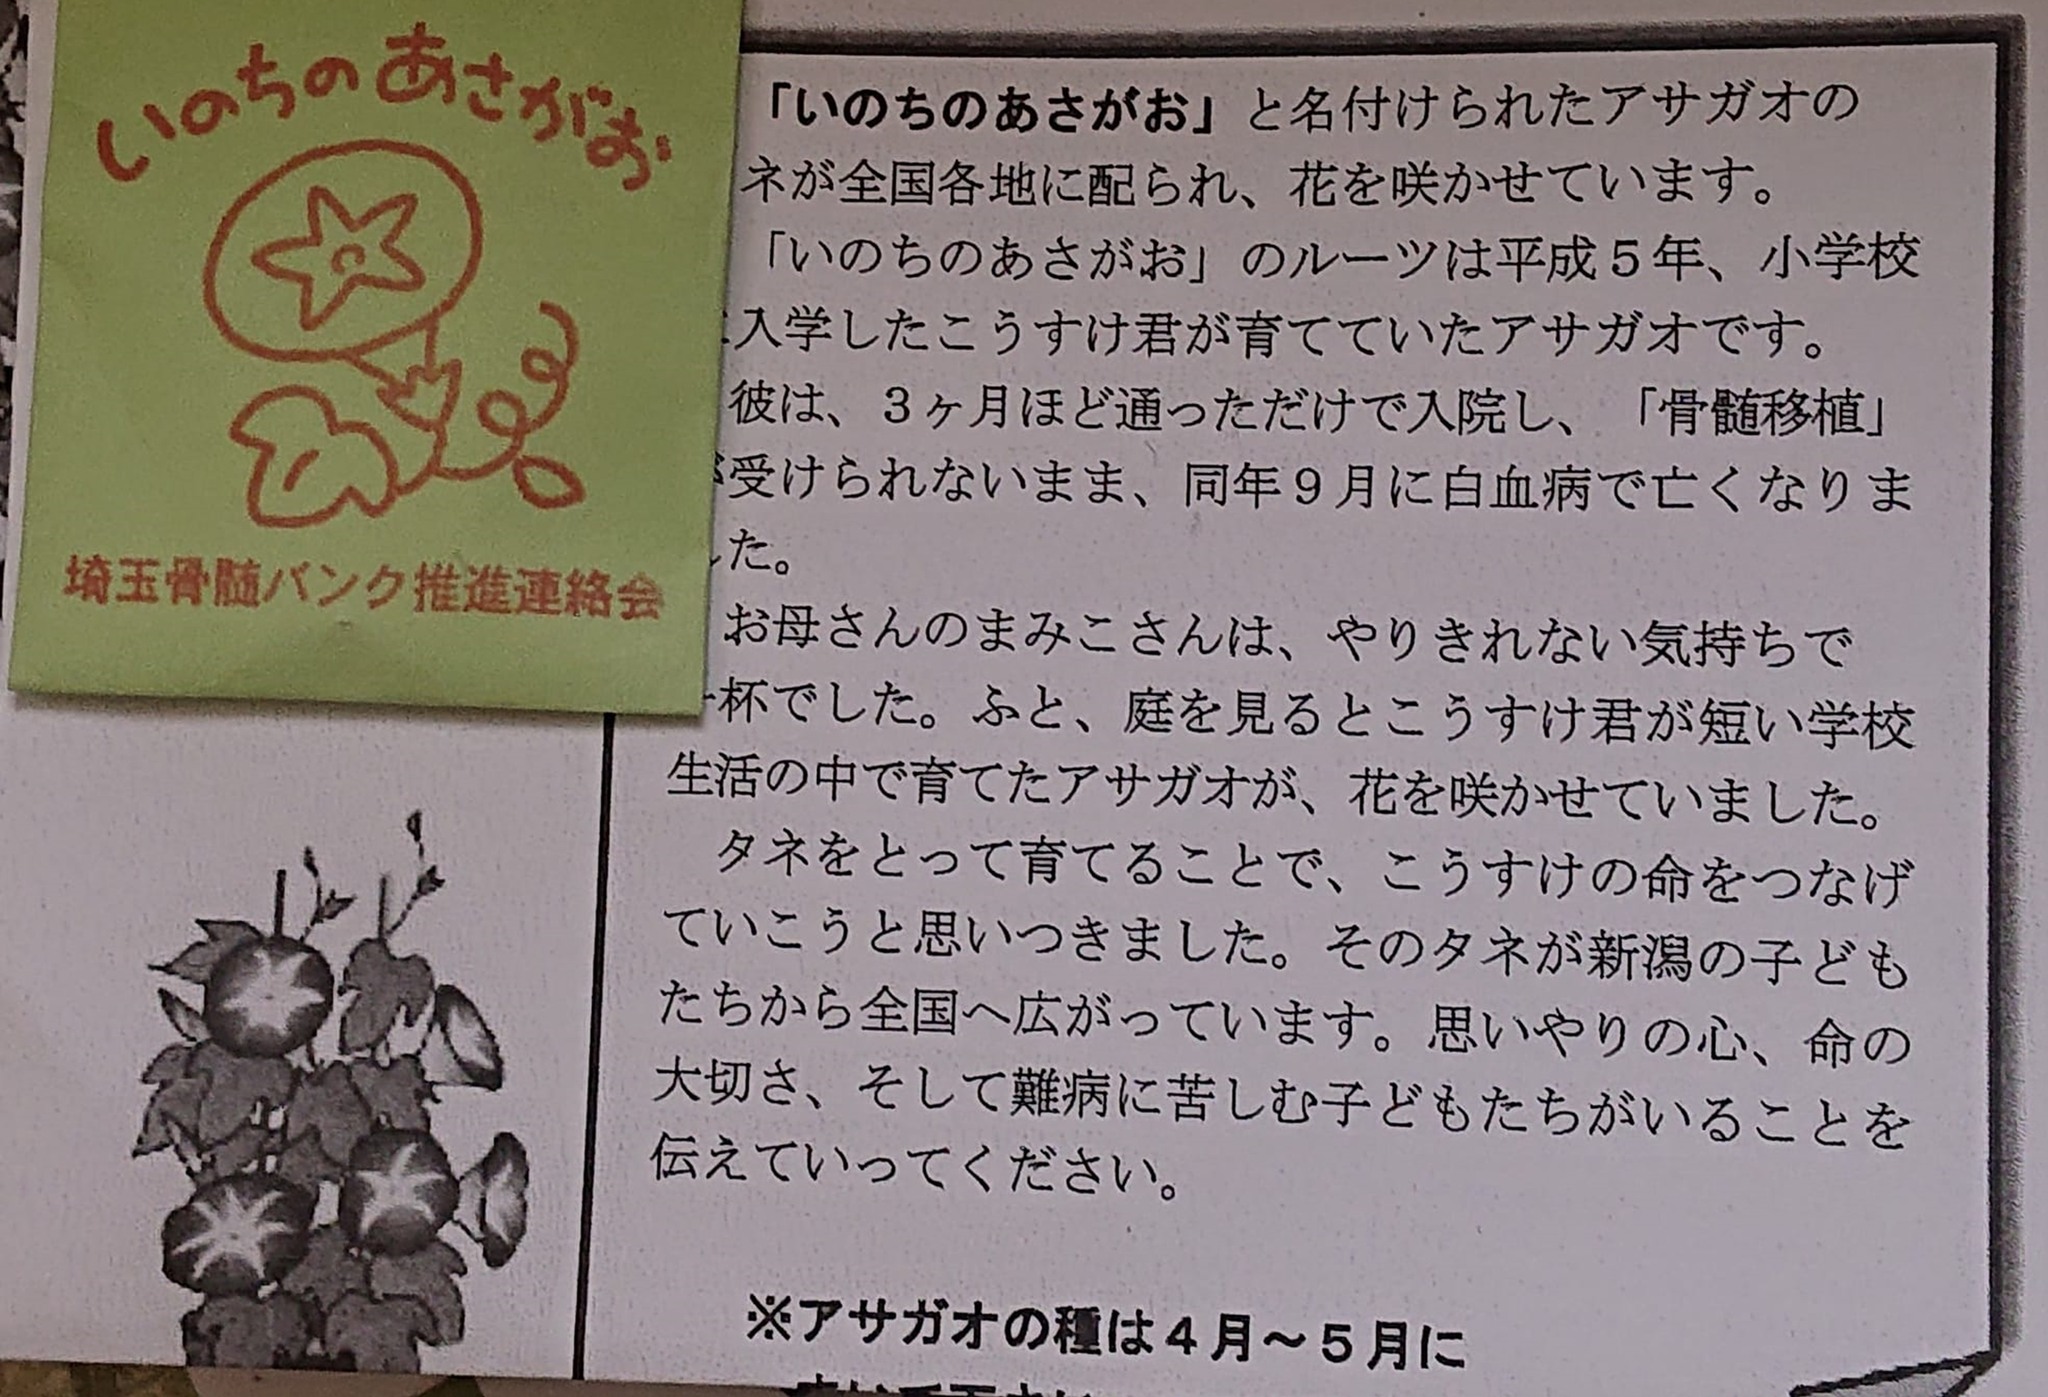 いのちのあさがお
埼玉骨髄バンク推進連絡会
「いのちのあさがお」と名付けられたアサガオの
ネが全国各地に配られ、花を咲かせています。
「いのちのあさがお」のルーツは平成５年、小学校
に入学したこうすけ君が育てていたアサガオです。
彼は、３ヶ月ほど通っただけで入院し、「骨髄移植」
が受けられないまま、同年９月に白血病で亡くなりま
した。
お母さんのまみこさんは、やりきれない気持ちで
一杯でした。ふと、庭を見るとこうすけ君が短い学校
生活の中で育てたアサガオが、花を咲かせていました。
タネをとって育てることで、こうすけの命をつなげ
ていこうと思いつきました。そのタネが新潟の子ども
たちから全国へ広がっています。思いやりの心、命の
大切さ、そして難病に苦しむ子どもたちがいることを
伝えていってください。
※アサガオの種は４月～５月に